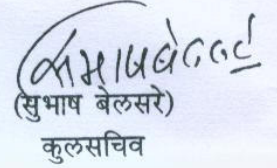 (सुभाष बेलसरे)
कुलसचिव